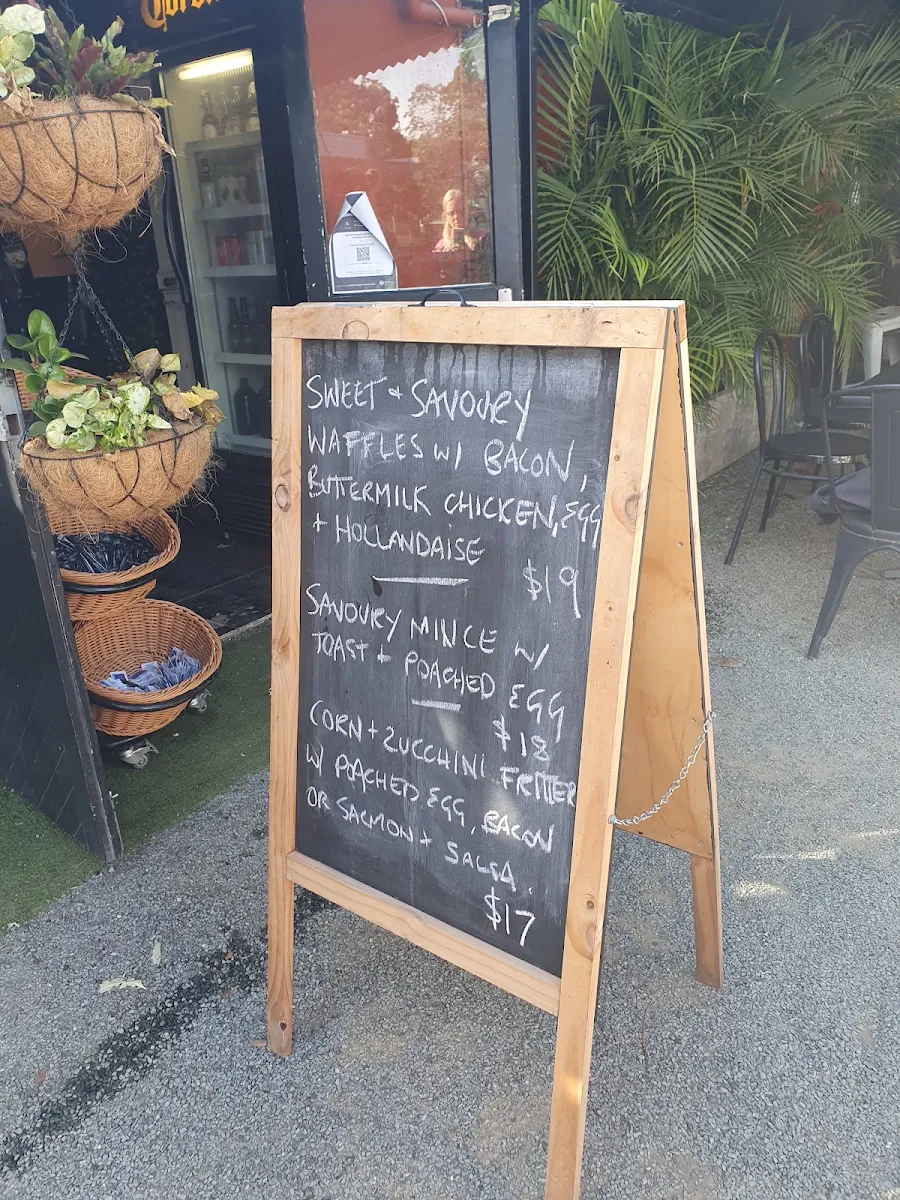 Corona
SWEET + SAVOURY
WAFFLES W/ BACON,
BUTTERMILK CHICKEN, EGG
+ HOLLANDAISE
$19
SAVOURY MINCE W/
TOAST + POACHED EGG
$18
CORN + ZUCCHINI FRITTER
W/ POACHED EGG, BACON
OR SALMON + SALSA.
$17